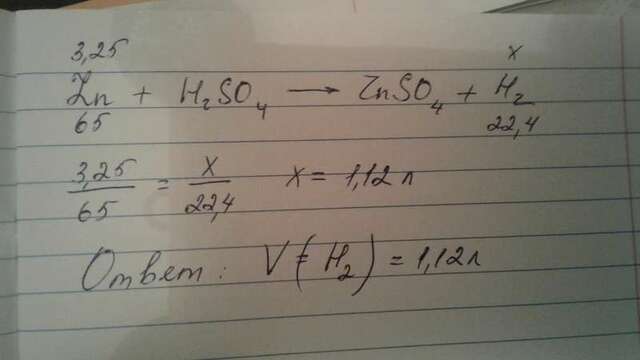 3,25 x
Zn + H₂SO₄ → ZnSO₄ + H₂
65 22,4
3,25/65 = x/22,4 x = 1,12 л
Ответ: V(H₂) = 1,12 л